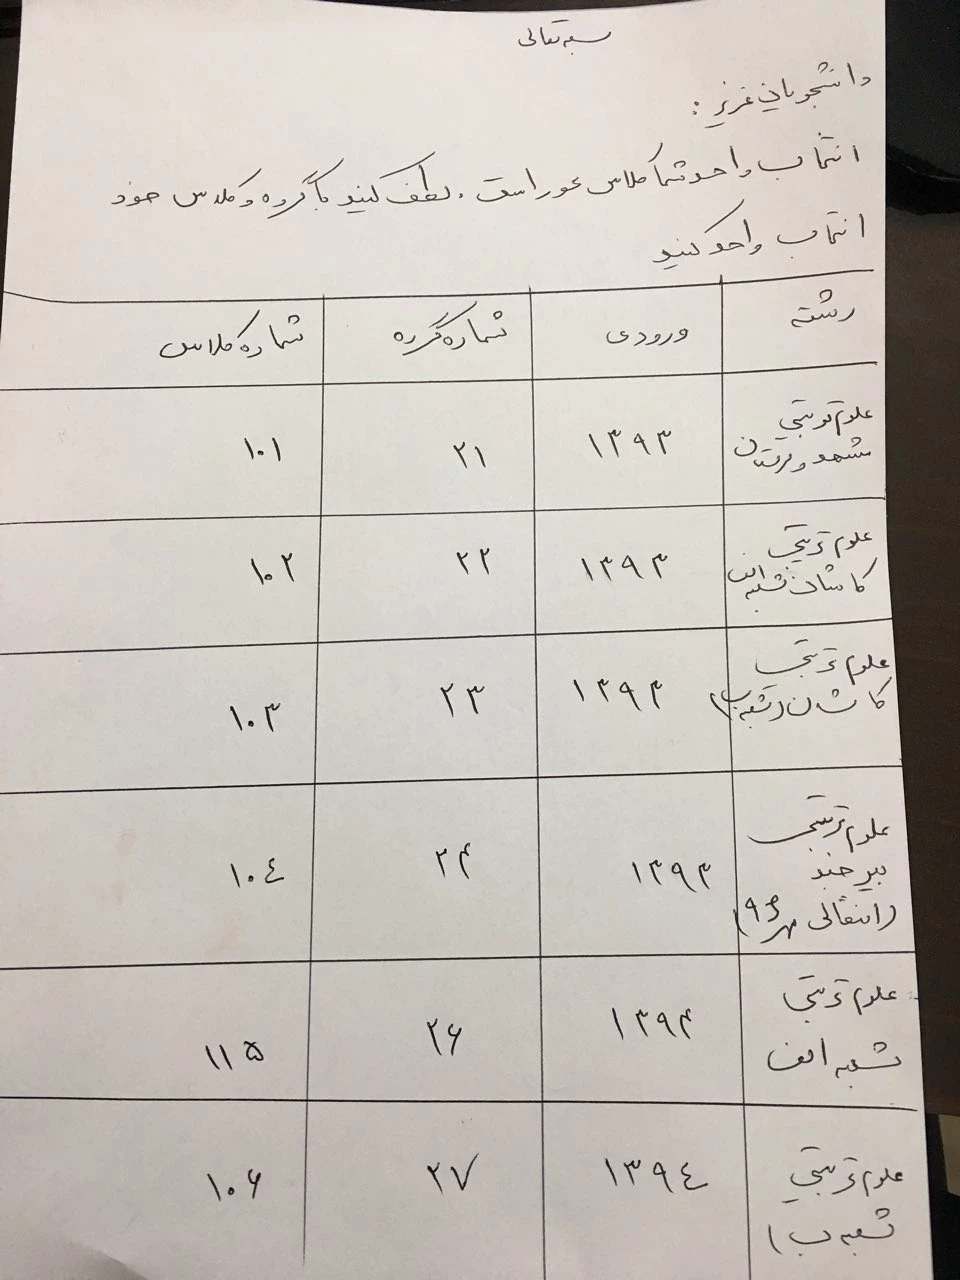 بسمه تعالی
دانشجویان عزیز :
انتخاب واحد شما کلاس محور است . لطف کنید با گروه و کلاس خود
انتخاب واحد کنید
رشته ورودی شماره گروه شماره کلاس
علوم تربیتی
مشهد و لرستان ۱۳۹۳ ۲۱ ۱۰۱
علوم تربیتی
کاشان شعبه الف ۱۳۹۳ ۲۲ ۱۰۲
علوم تربیتی
کاشان (شعبه ب) ۱۳۹۳ ۲۳ ۱۰۳
علوم تربیتی
بیرجند
(انتقالی مهر ۹۶) ۱۳۹۳ ۲۴ ۱۰٤
علوم تربیتی
شعبه الف ۱۳۹۴ ۲۶ ۱۱۵
علوم تربیتی
شعبه ب ) ۱۳۹٤ ۲۷ ۱۰۶